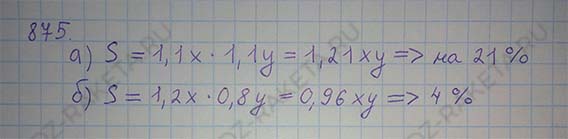 875.
а) S = 1,1x · 1,1y = 1,21xy => на 21%
б) S = 1,2x · 0,8y = 0,96xy => 4%